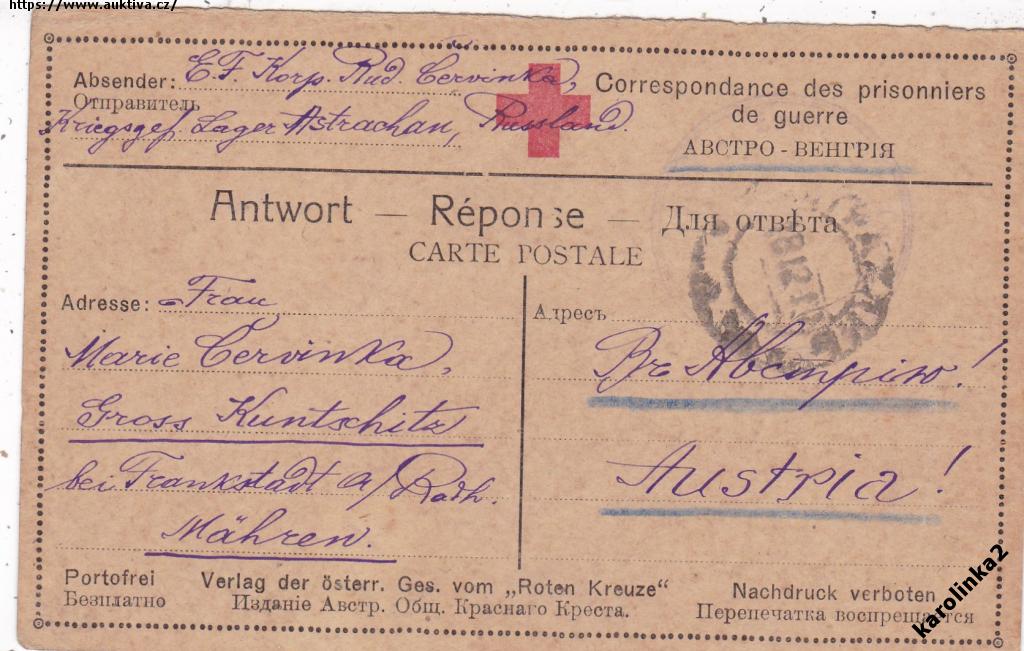 https://www.auktiva.cz/
Absender: E. F. Korp. Rud. Červinka,
Отправитель
Kriegsgef. Lager Astrachan, Russland.
Correspondance des prisonniers
de guerre
АВСТРО - ВЕНГРІЯ
Antwort — Réponse — Для отвѣта
CARTE POSTALE
Adresse: Frau
Marie Červinka,
Gross Kuntschitz
bei Frankstadt a/Radh.
Mähren.
Адресъ
Въ Австрію!
Austria!
Portofrei
Безплатно
Verlag der österr. Ges. vom „Roten Kreuze“
Изданіе Австр. Общ. Краснаго Креста.
Nachdruck verboten
Перепечатка воспрещается
karolinka2